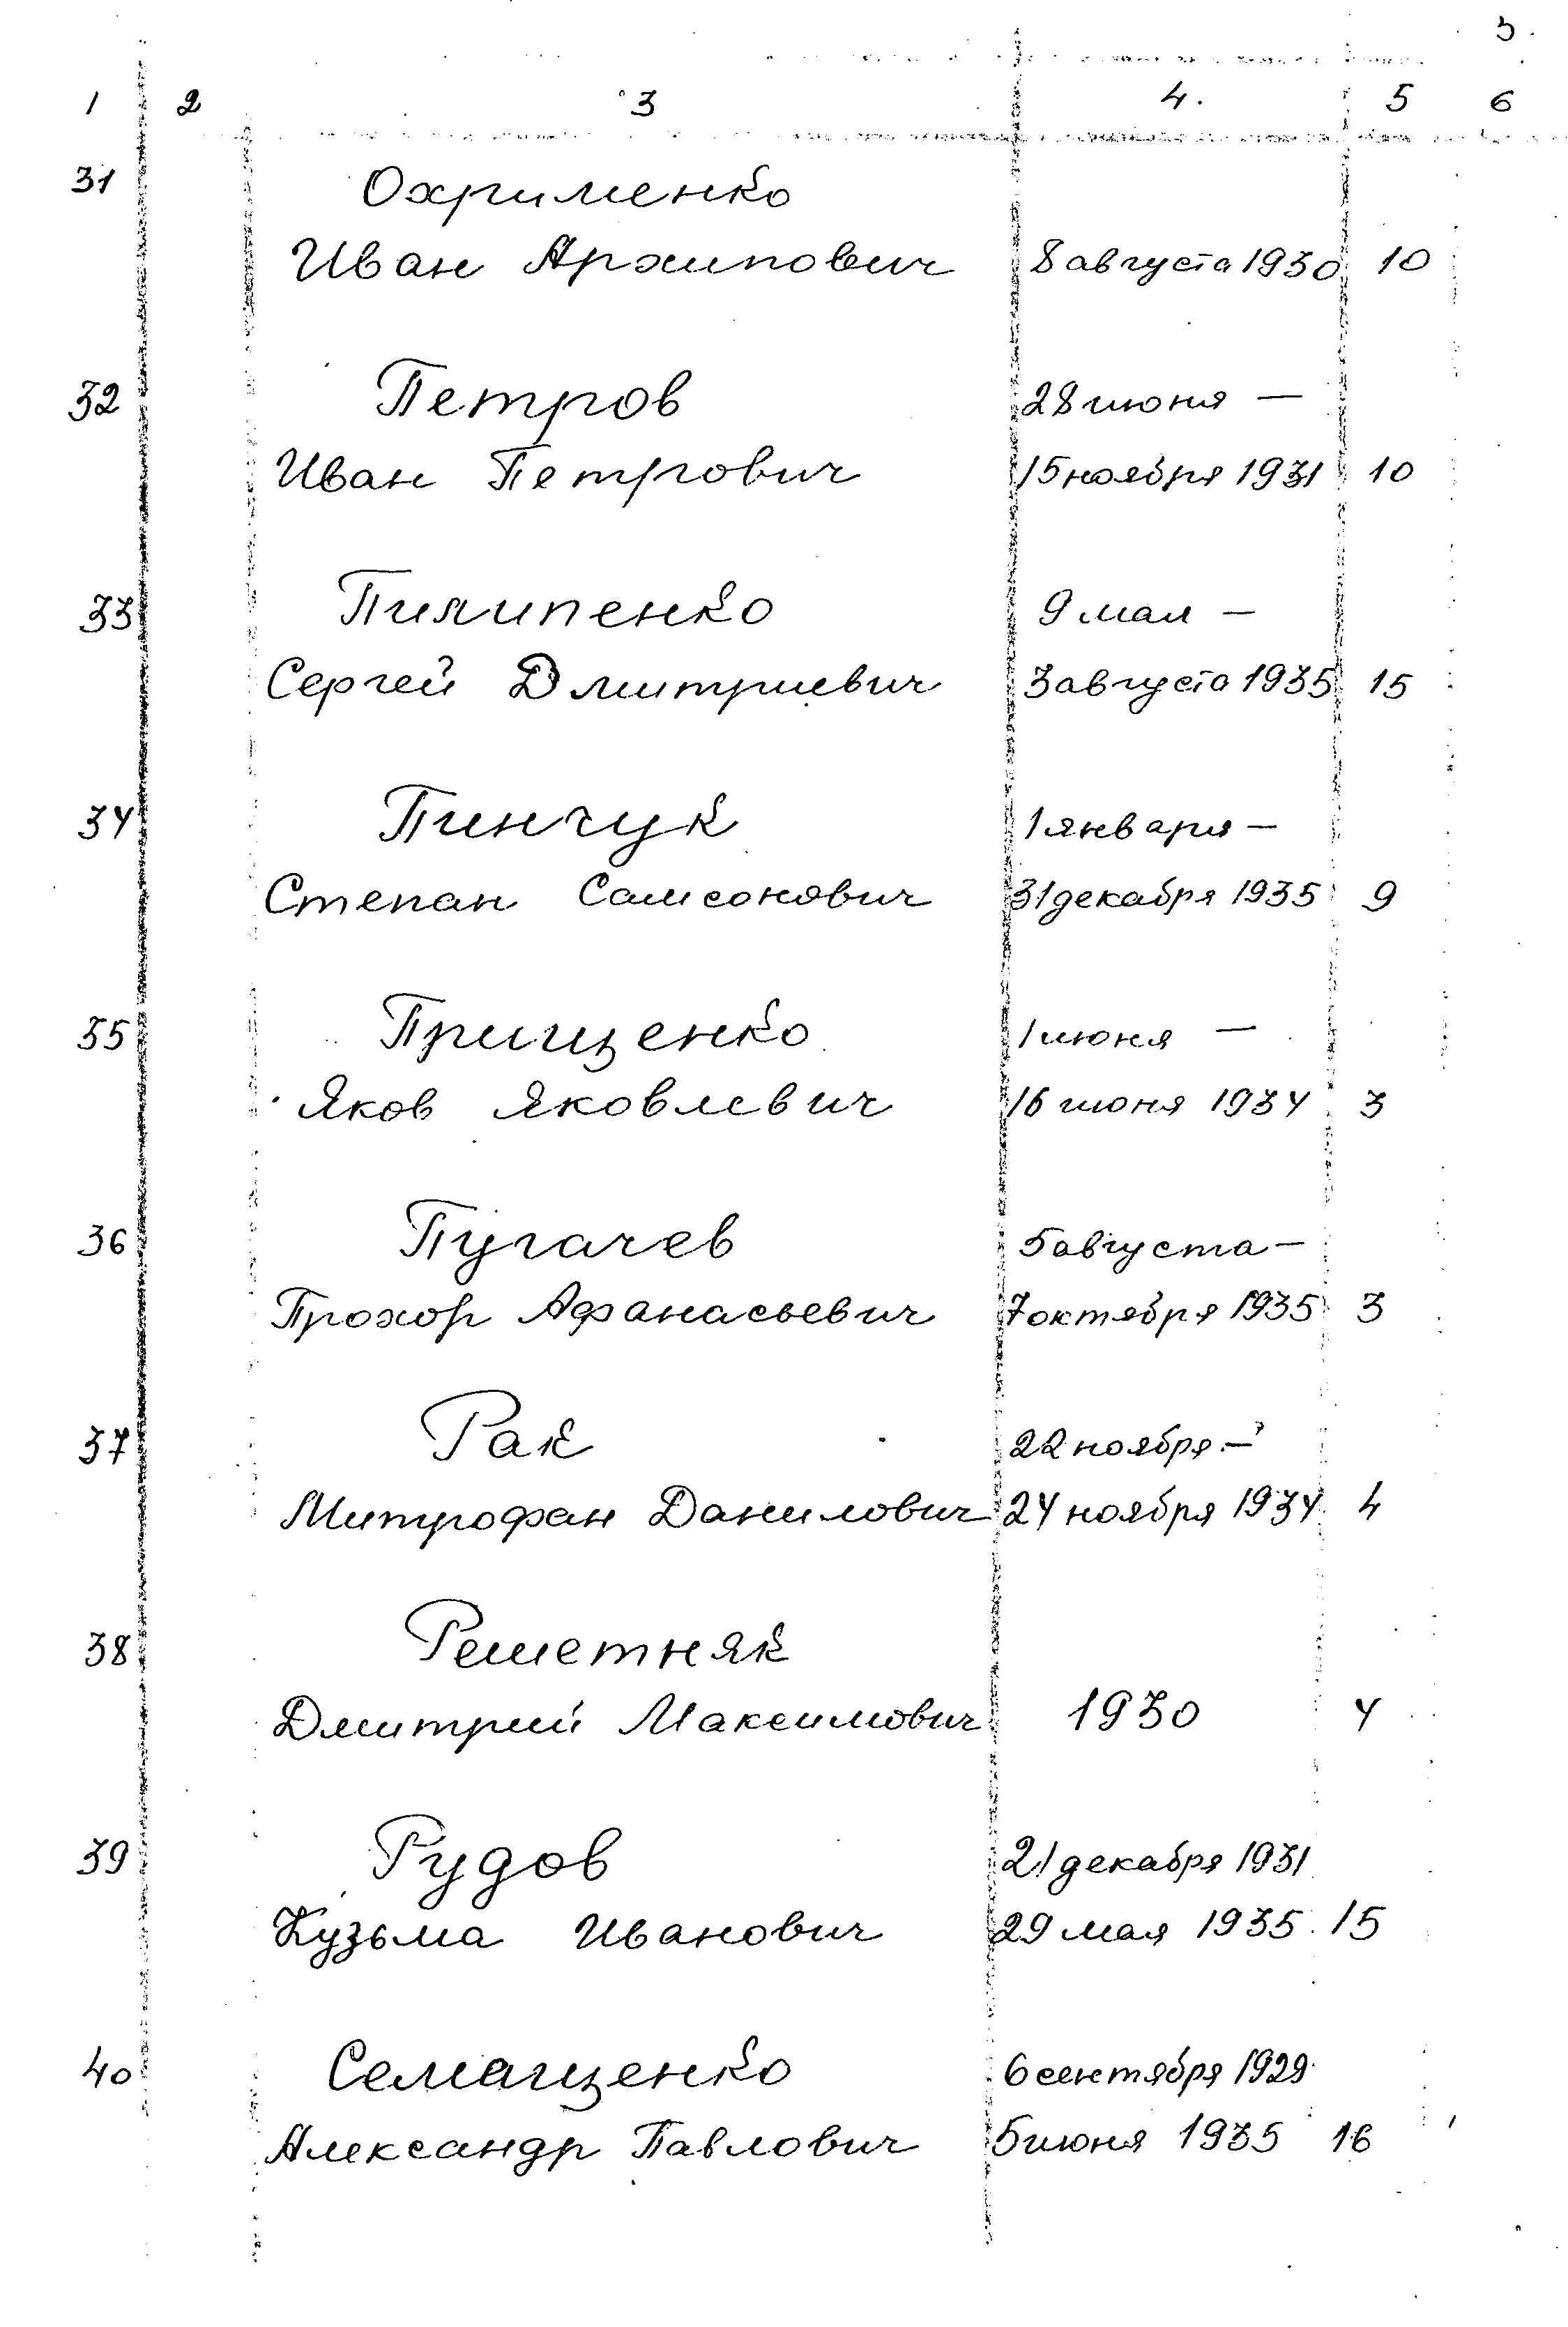 3.
1 2 3 4. 5 6
31 Охрименко
Иван Архипович 8 августа 1930 10
32 Петров 28 июня —
Иван Петрович 15 ноября 1931 10
33 Пилипенко 9 мая —
Сергей Дмитриевич 3 августа 1935 15
34 Пинчук 1 января —
Степан Самсонович 31 декабря 1935 9
35 Прищенко 1 июня —
Яков Яковлевич 16 июня 1934 3
36 Пугачев 5 августа —
Прохор Афанасьевич 7 октября 1935 3
37 Рак 22 ноября —
Митрофан Данилович 24 ноября 1934 4
38 Решетняк
Дмитрий Максимович 1930 4
39 Рудов 21 декабря 1931
Кузьма Иванович 29 мая 1935 15
40 Семащенко 6 сентября 1929
Александр Павлович 5 июня 1935 16